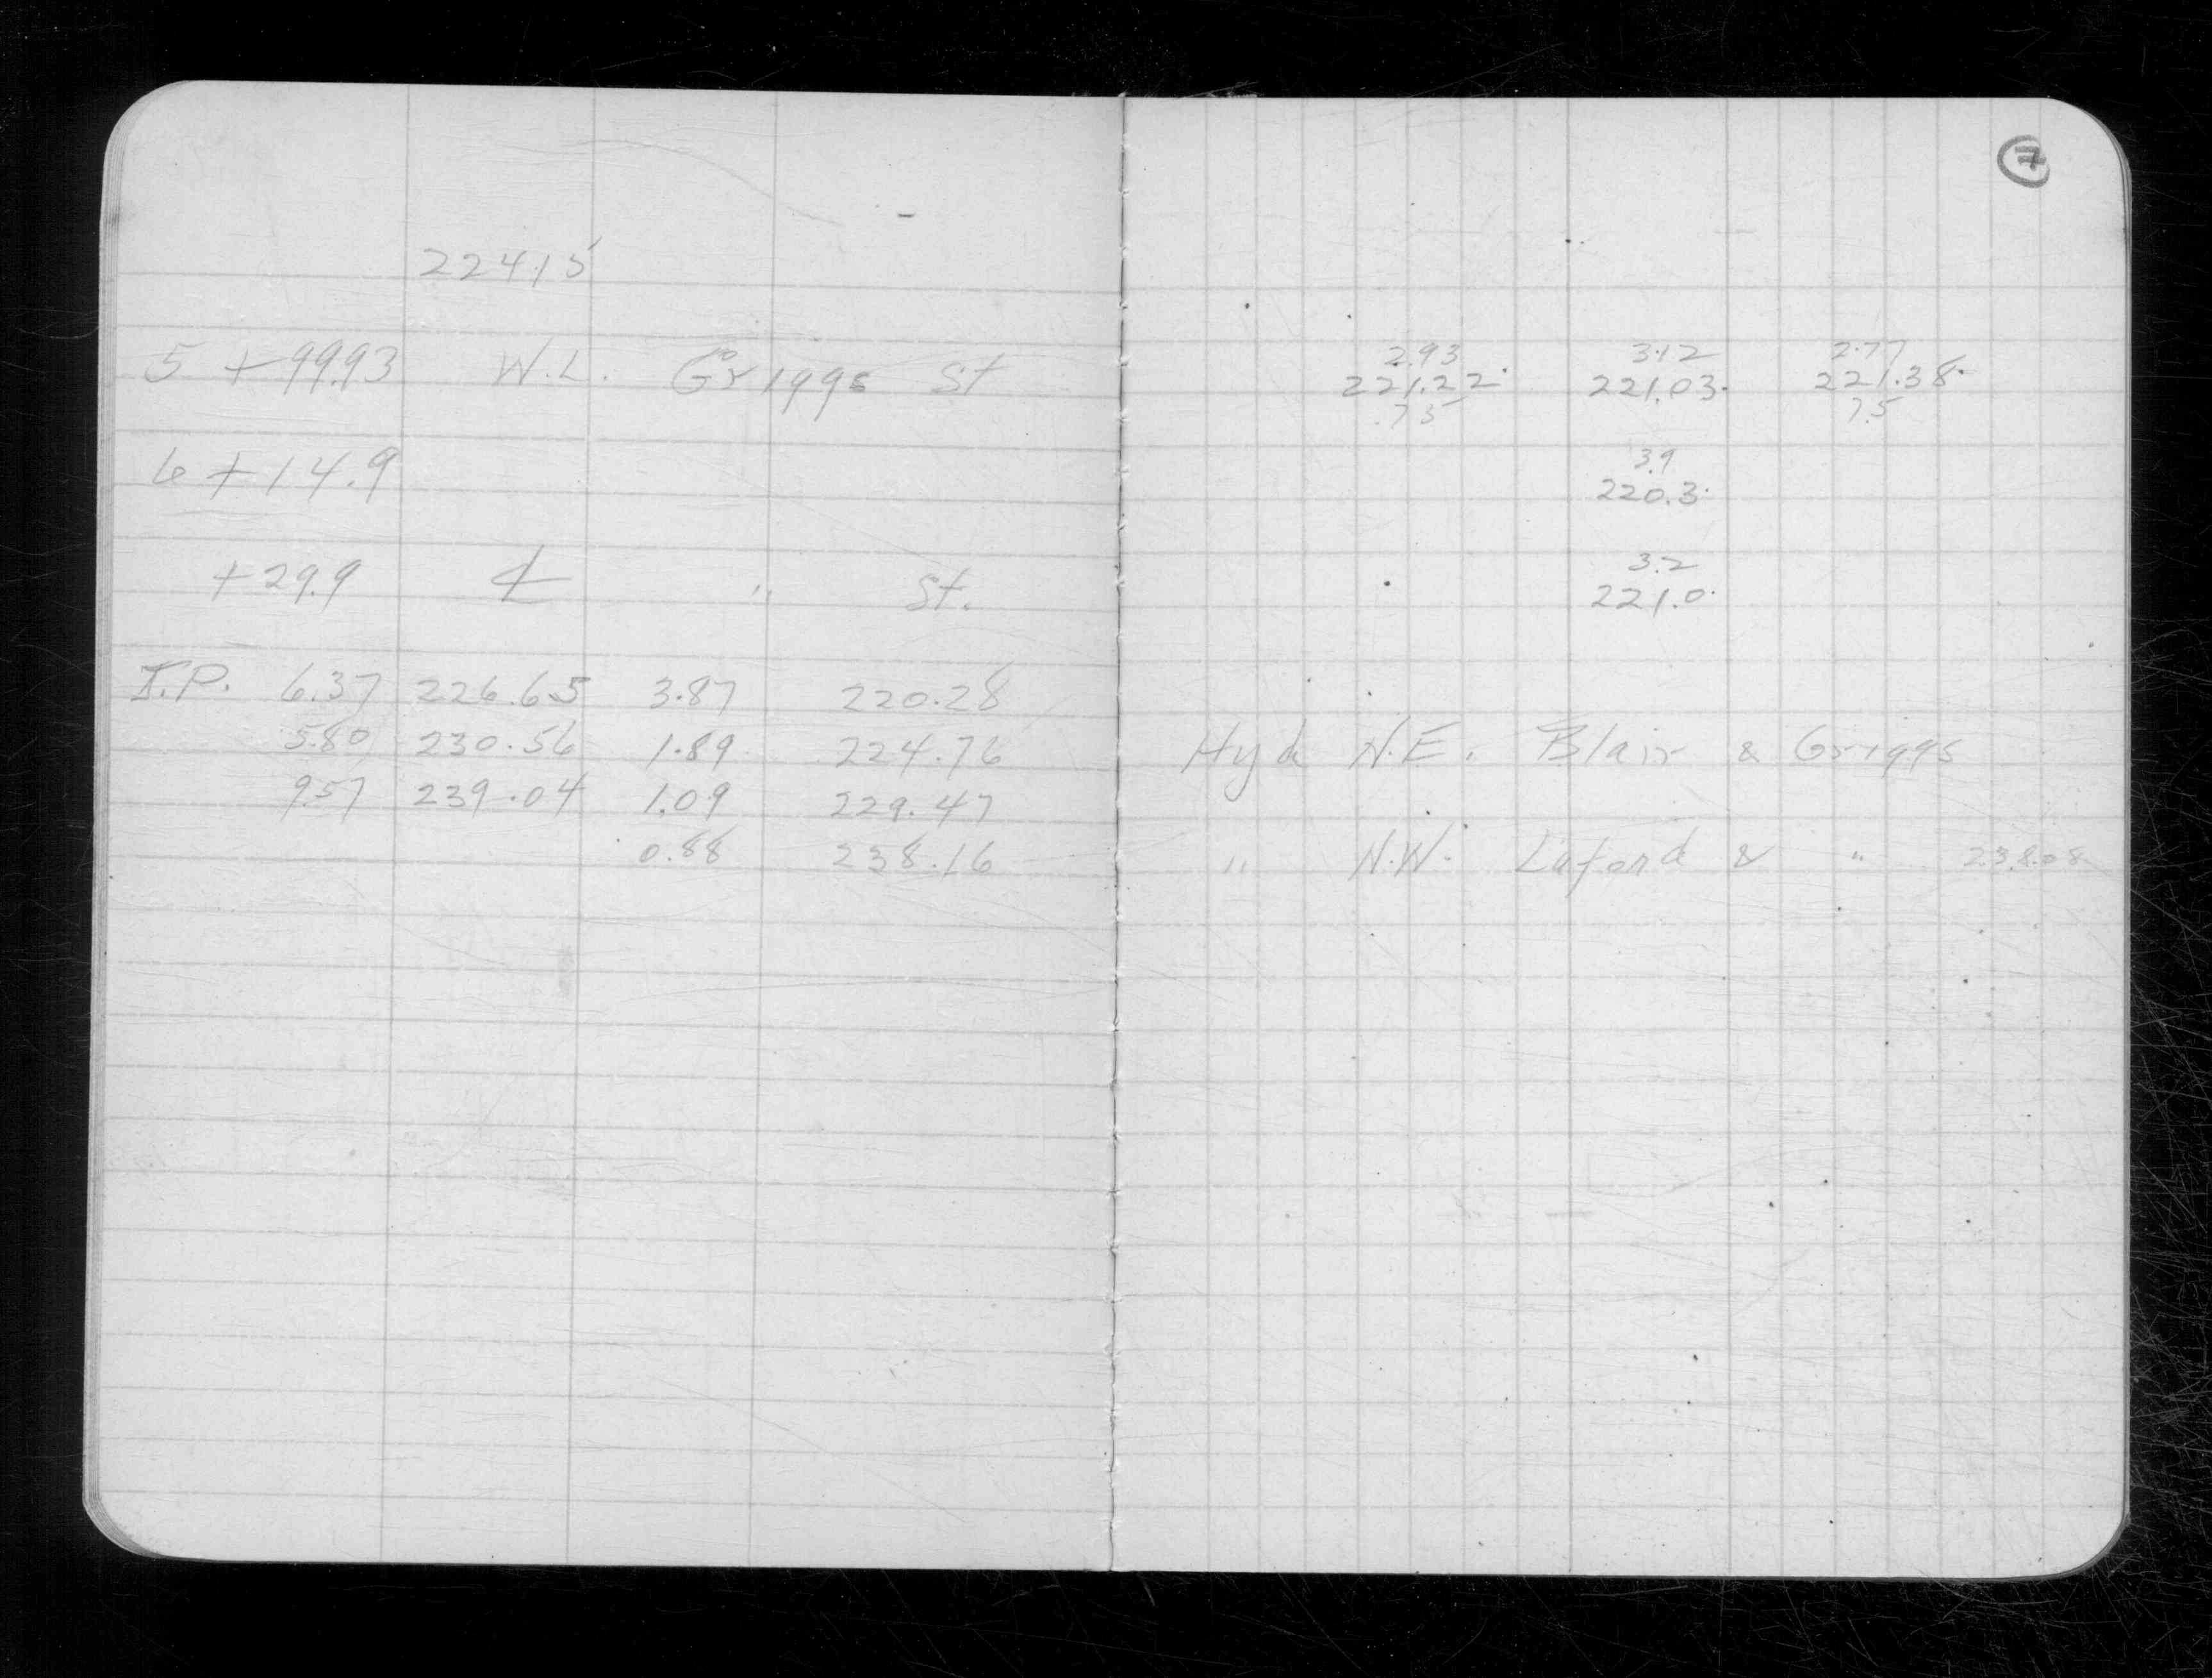 7
224.15
5 + 99.93 W.L. Griggs St
2.93 3.12 2.77
221.22 221.03 221.38
.75 7.5
6 + 14.9
3.9
220.3
+ 29.9 ℄ " St.
3.2
221.0
T.P. 6.37 226.65 3.87 220.28
5.80 230.56 1.89 224.76 Hyd N.E. Blair & Griggs
9.57 239.04 1.09 229.47
0.88 238.16 " N.W. Lafond & " 238.08